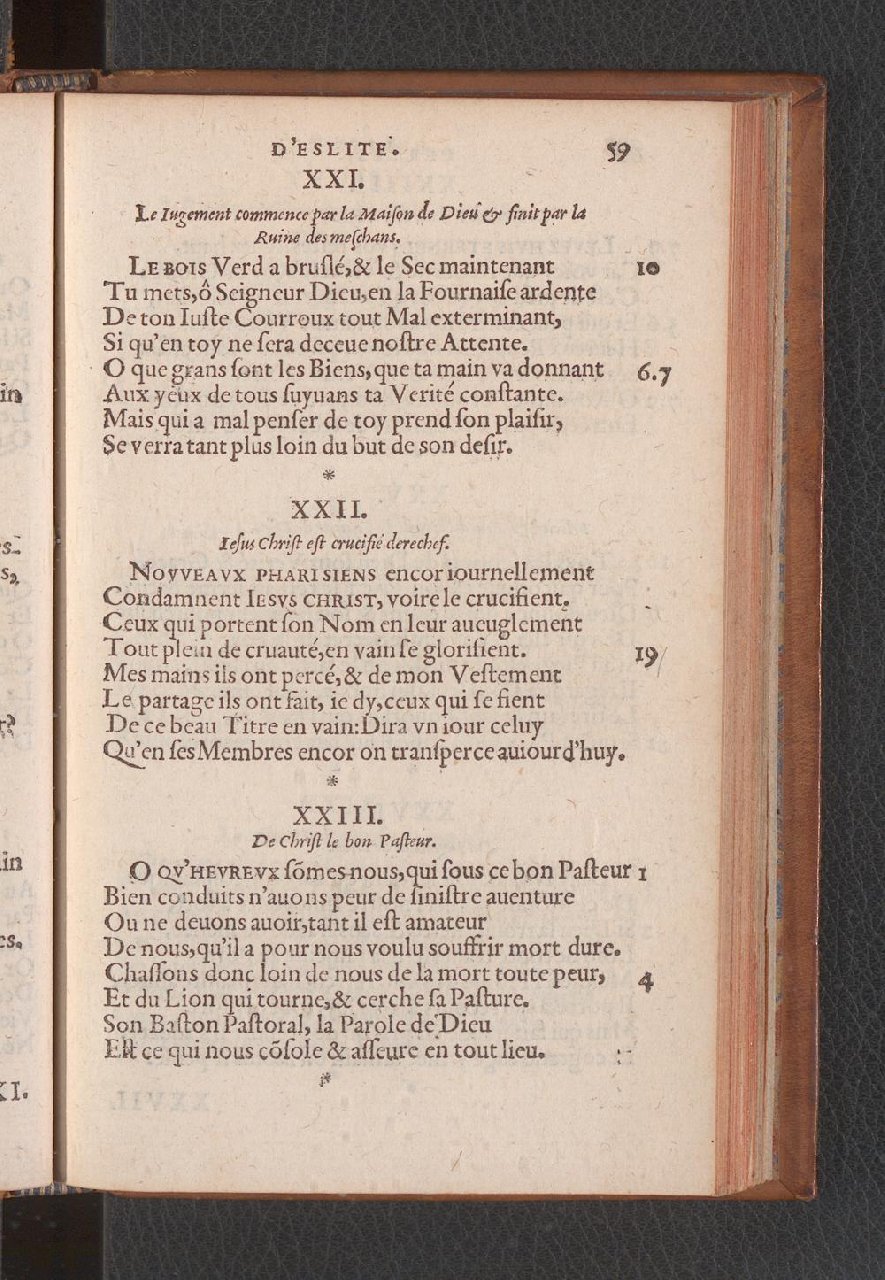 D'ESLITE. 59
XXI.
Le Iugement commence par la Maiſon de Dieu & finit par la
Ruine des meſchans.
LE BOIS Verd a bruſlé, & le Sec maintenant 10
Tu mets, ô Seigneur Dieu, en la Fournaiſe ardente
De ton Iuſte Courroux tout Mal exterminant,
Si qu'en toy ne ſera deceue noſtre Attente.
O que grans ſont les Biens, que ta main va donnant 6.7
Aux yeux de tous ſuyuans ta Verité conſtante.
Mais qui a mal penſer de toy prend ſon plaiſir,
Se verra tant plus loin du but de son deſir.
*
XXII.
Ieſus Chriſt eſt crucifié derechef.
NOVVEAVX PHARISIENS encor iournellement
Condamnent IESVS CHRIST, voire le crucifient.
Ceux qui portent ſon Nom en leur aueuglement
Tout plein de cruauté, en vain ſe glorifient. 19
Mes mains ils ont percé, & de mon Veſtement
Le partage ils ont fait, ie dy, ceux qui ſe fient
De ce beau Titre en vain: Dira vn iour celuy
Qu'en ſes Membres encor on tranſperce auiourd'huy.
*
XXIII.
De Chriſt le bon Paſteur.
O QV'HEVREVX ſõmes-nous, qui ſous ce bon Paſteur 1
Bien conduits n'auons peur de ſiniſtre auenture
Ou ne deuons auoir, tant il eſt amateur
De nous, qu'il a pour nous voulu souffrir mort dure.
Chaſſons donc loin de nous de la mort toute peur, 4
Et du Lion qui tourne, & cerche ſa Paſture.
Son Baſton Paſtoral, la Parole de Dieu
Eſt ce qui nous cõſole & aſſeure en tout lieu.
*
in
s.
s,
r?
in
es.
XI.